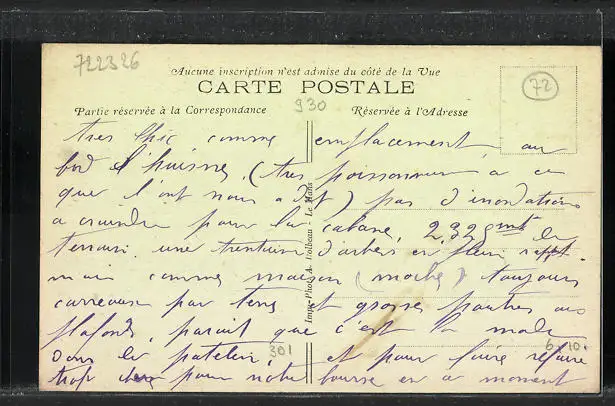 722326
Aucune inscription n'est admise du côté de la Vue
CARTE POSTALE
72
930
Partie réservée à la Correspondance
Réservée à l'Adresse
très chic comme emplacement, au
bord d'huisne, (très poissonneux à ce
que l'ont nous a dit) pas d'inondations
a craindre pour la cabane, 2,32 de
terrain une trentaine d'arbres en plein rapport
mais comme maison (moche) toujours
carreaux par terre et grosses poutres aux
plafonds, parait que c'est la mode
dans le patelin, et pour faire refaire
trop pour notre bourse en ce moment
Imp.-Phot. A. Dolbeau - Le Mans
301
6 10